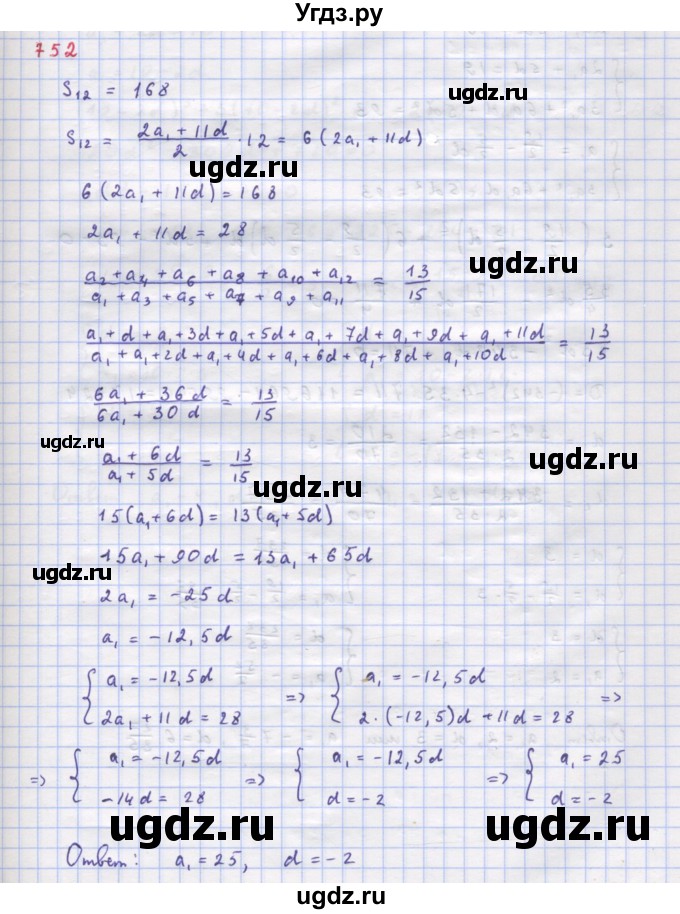 Угдз.ру
752
S₁₂ = 168
ugdz.ru
S₁₂ = (2a₁ + 11d)/2 · 12 = 6(2a₁ + 11d)
ugdz.ru
6(2a₁ + 11d) = 168
2a₁ + 11d = 28
ugdz.ru
(a₂ + a₄ + a₆ + a₈ + a₁₀ + a₁₂)/(a₁ + a₃ + a₅ + a₇ + a₉ + a₁₁) = 13/15
ugdz.ru
(a₁ + d + a₁ + 3d + a₁ + 5d + a₁ + 7d + a₁ + 9d + a₁ + 11d)/(a₁ + a₁ + 2d + a₁ + 4d + a₁ + 6d + a₁ + 8d + a₁ + 10d) = 13/15
(6a₁ + 36d)/(6a₁ + 30d) = 13/15
ugdz.ru
ugdz.ru
(a₁ + 6d)/(a₁ + 5d) = 13/15
ugdz.ru
15(a₁ + 6d) = 13(a₁ + 5d)
15a₁ + 90d = 13a₁ + 65d
ugdz.ru
2a₁ = -25d
ugdz.ru
a₁ = -12,5d
{ a₁ = -12,5d => { a₁ = -12,5d =>
2a₁ + 11d = 28 2·(-12,5)d + 11d = 28
ugdz.ru
=> { a₁ = -12,5d => { a₁ = -12,5d => { a₁ = 25
-14d = 28 d = -2 d = -2
ugdz.ru
ugdz.ru
ugdz.ru
Ответ: a₁ = 25, d = -2
ugdz.ru